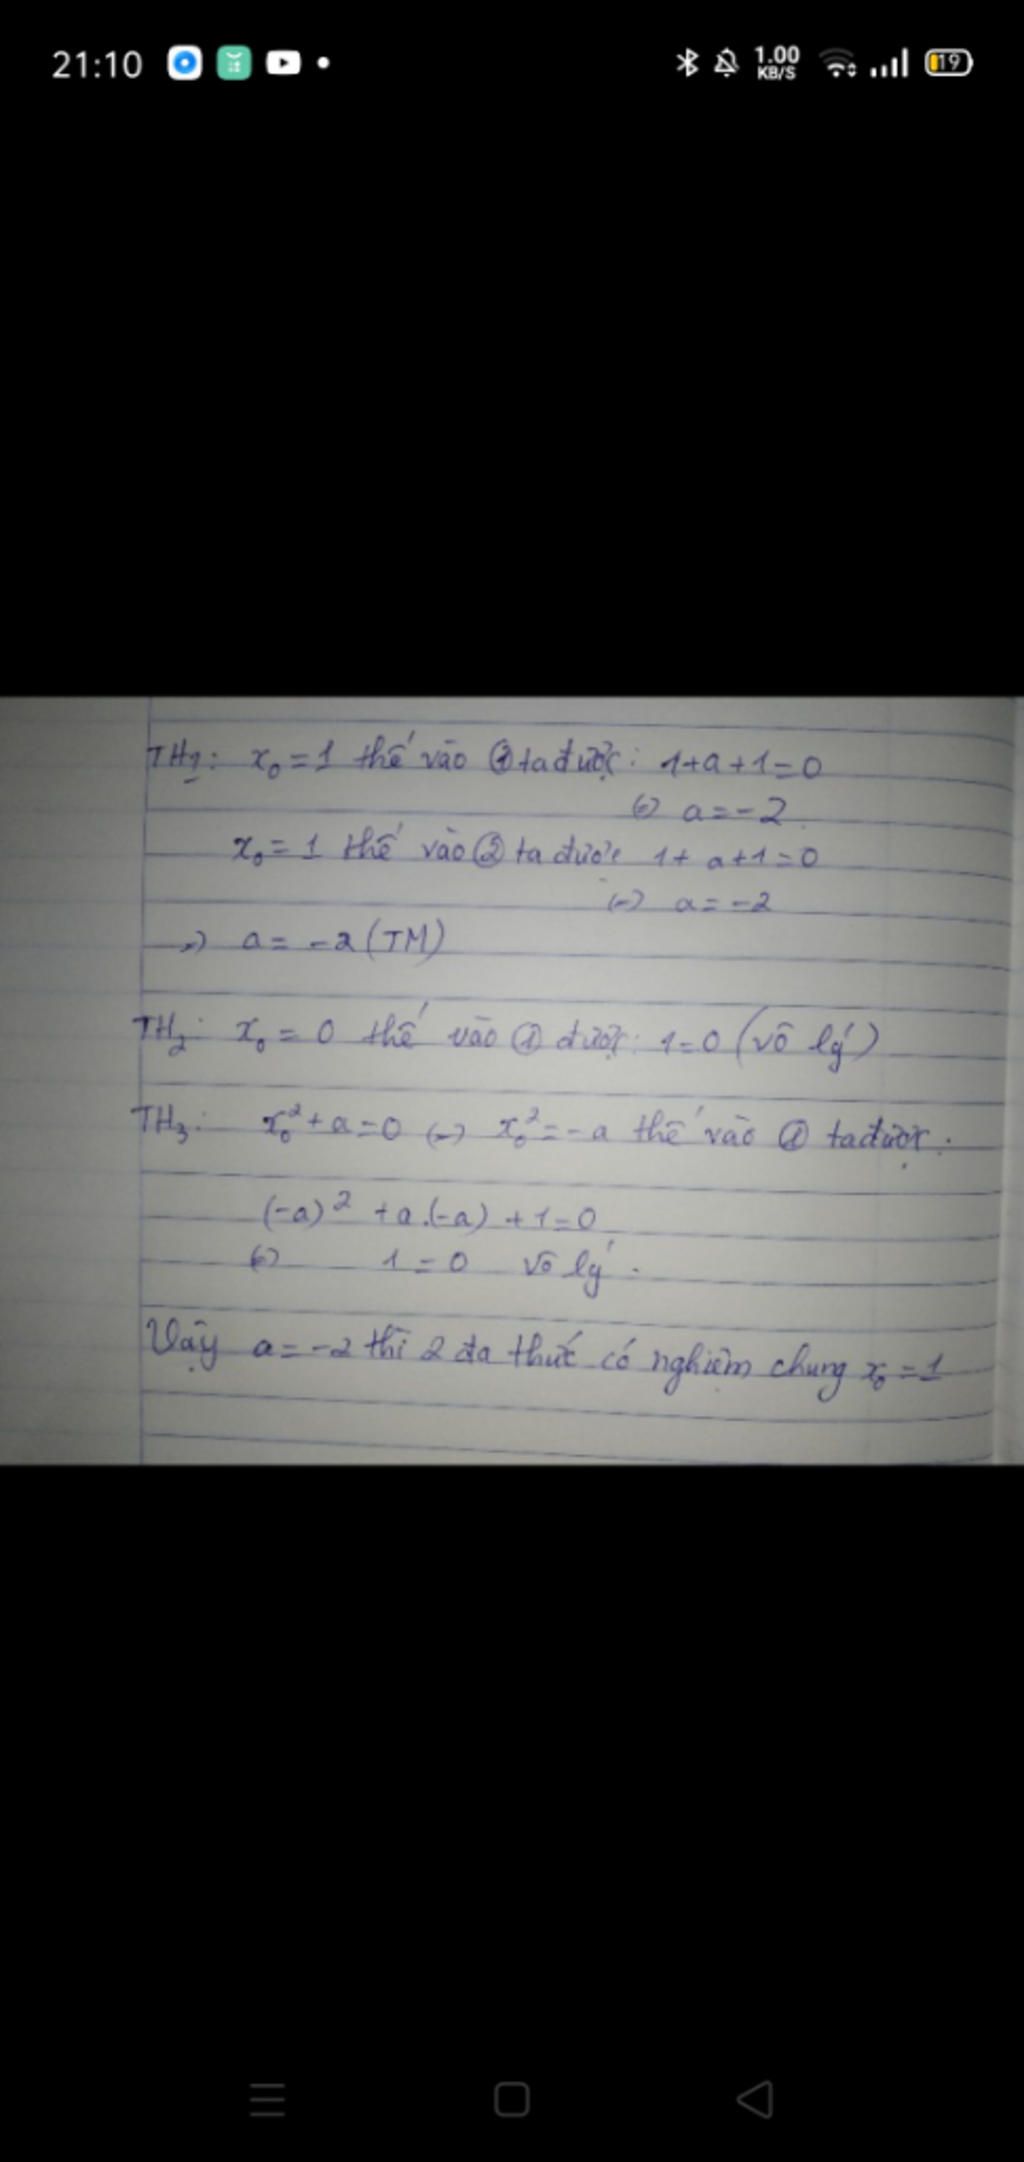 21:10 1.00 KB/S 19
TH1: x₀ = 1 thế vào ① ta được: 1+a+1=0
(=) a=-2
x₀ = 1 thế vào ② ta được 1+a+1=0
(=) a=-2
=) a = -2 (TM)
TH₂: x₀ = 0 thế vào ① được: 1=0 (vô lý)
TH₃: x₀²+a=0 (=) x₀²=-a thế vào ① ta được:
(-a)² +a.(-a) +1=0
(=) 1=0 vô lý.
Vậy a=-2 thì 2 đa thức có nghiệm chung x₀=1